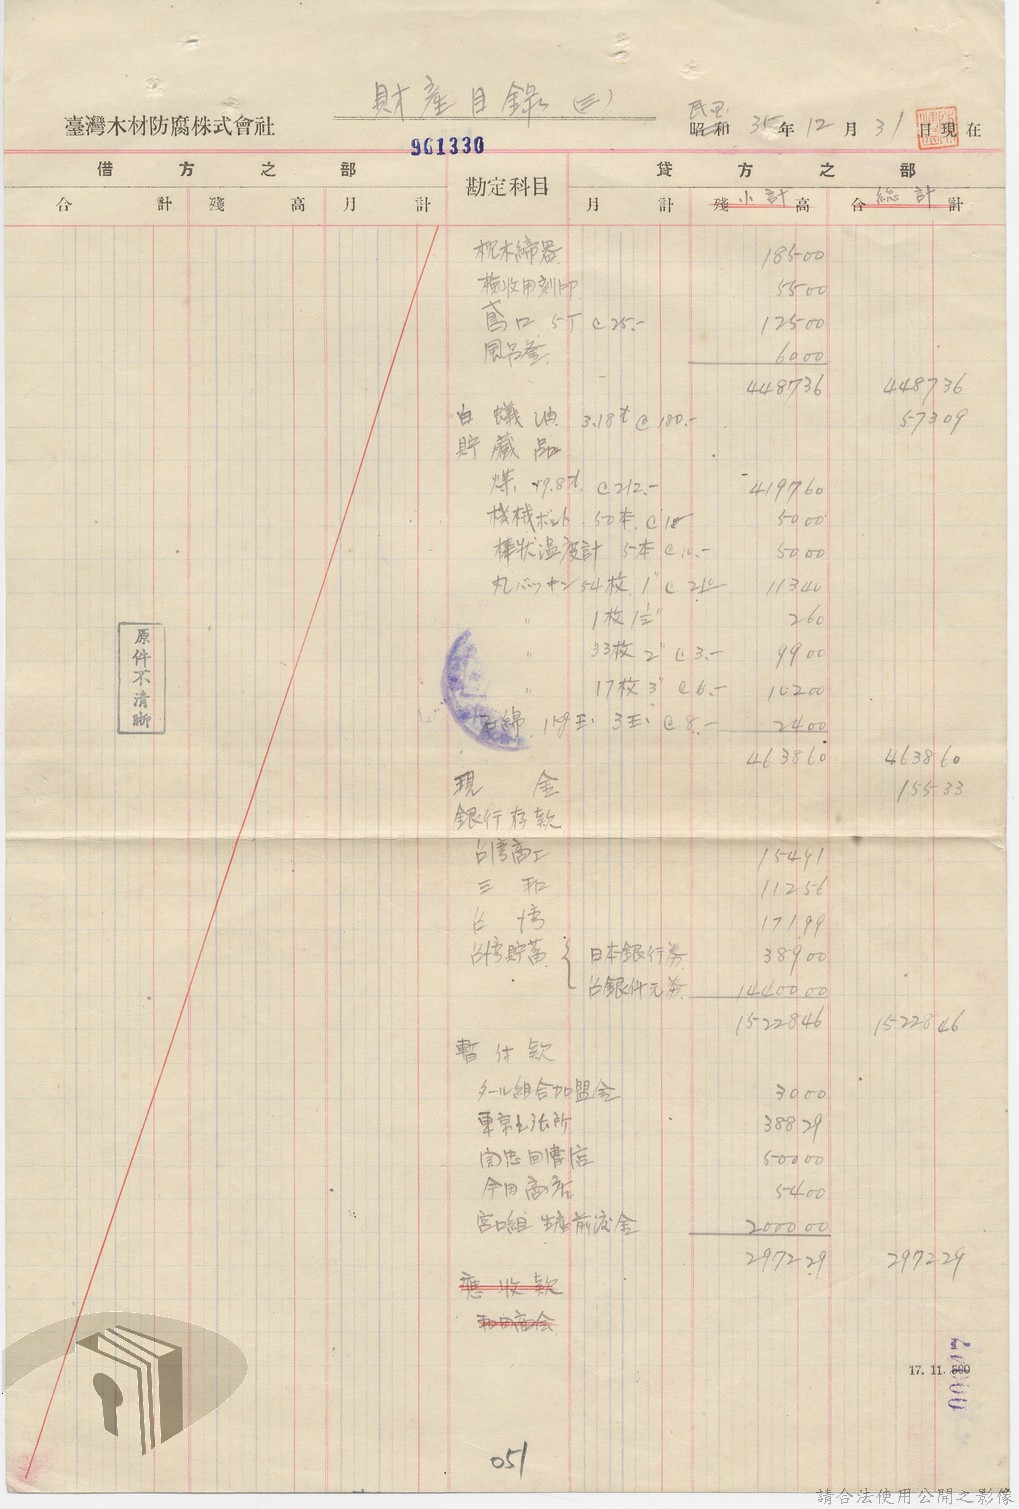 財產目錄(三)
臺灣木材防腐株式會社
民国
昭和 35年12月31日現在
901330
借方之部
勘定科目
貸方之部
合計 殘高 月計
月計 殘高 小計 合計 総計
枕木締器 18500
検收用刻印 5500
鳶口 5丁 @25.- 12500
風呂釜 6000
448736 448736
白蟻油 3.18t @180.- 57309
貯藏品
煤 19.8t @212.- 419760
機械ボルト 50本 @10 5000
棒状温度計 5本 @10.- 5000
丸パッキン 54枚 1" @210 11340
〃 1枚 1½" 260
〃 33枚 2" @3.- 9900
〃 17枚 3" @6.- 10200
石綿 1kg玉 3玉 @8.- 2400
463860 463860
現金 15533
銀行存款
台湾商工 15491
三和 11256
台湾 17199
台湾貯蓄 日本銀行券 38900
台銀仟元券 1440000
1522846 1522846
暫付款
タール組合加盟金 3000
東京出張所 38829
50000
今田商店 5400
宮口組 生産前渡金 200000
297229 297229
應收款
和田商会
原件不清晰
17. 11. 500
051
請合法使用公開之影像